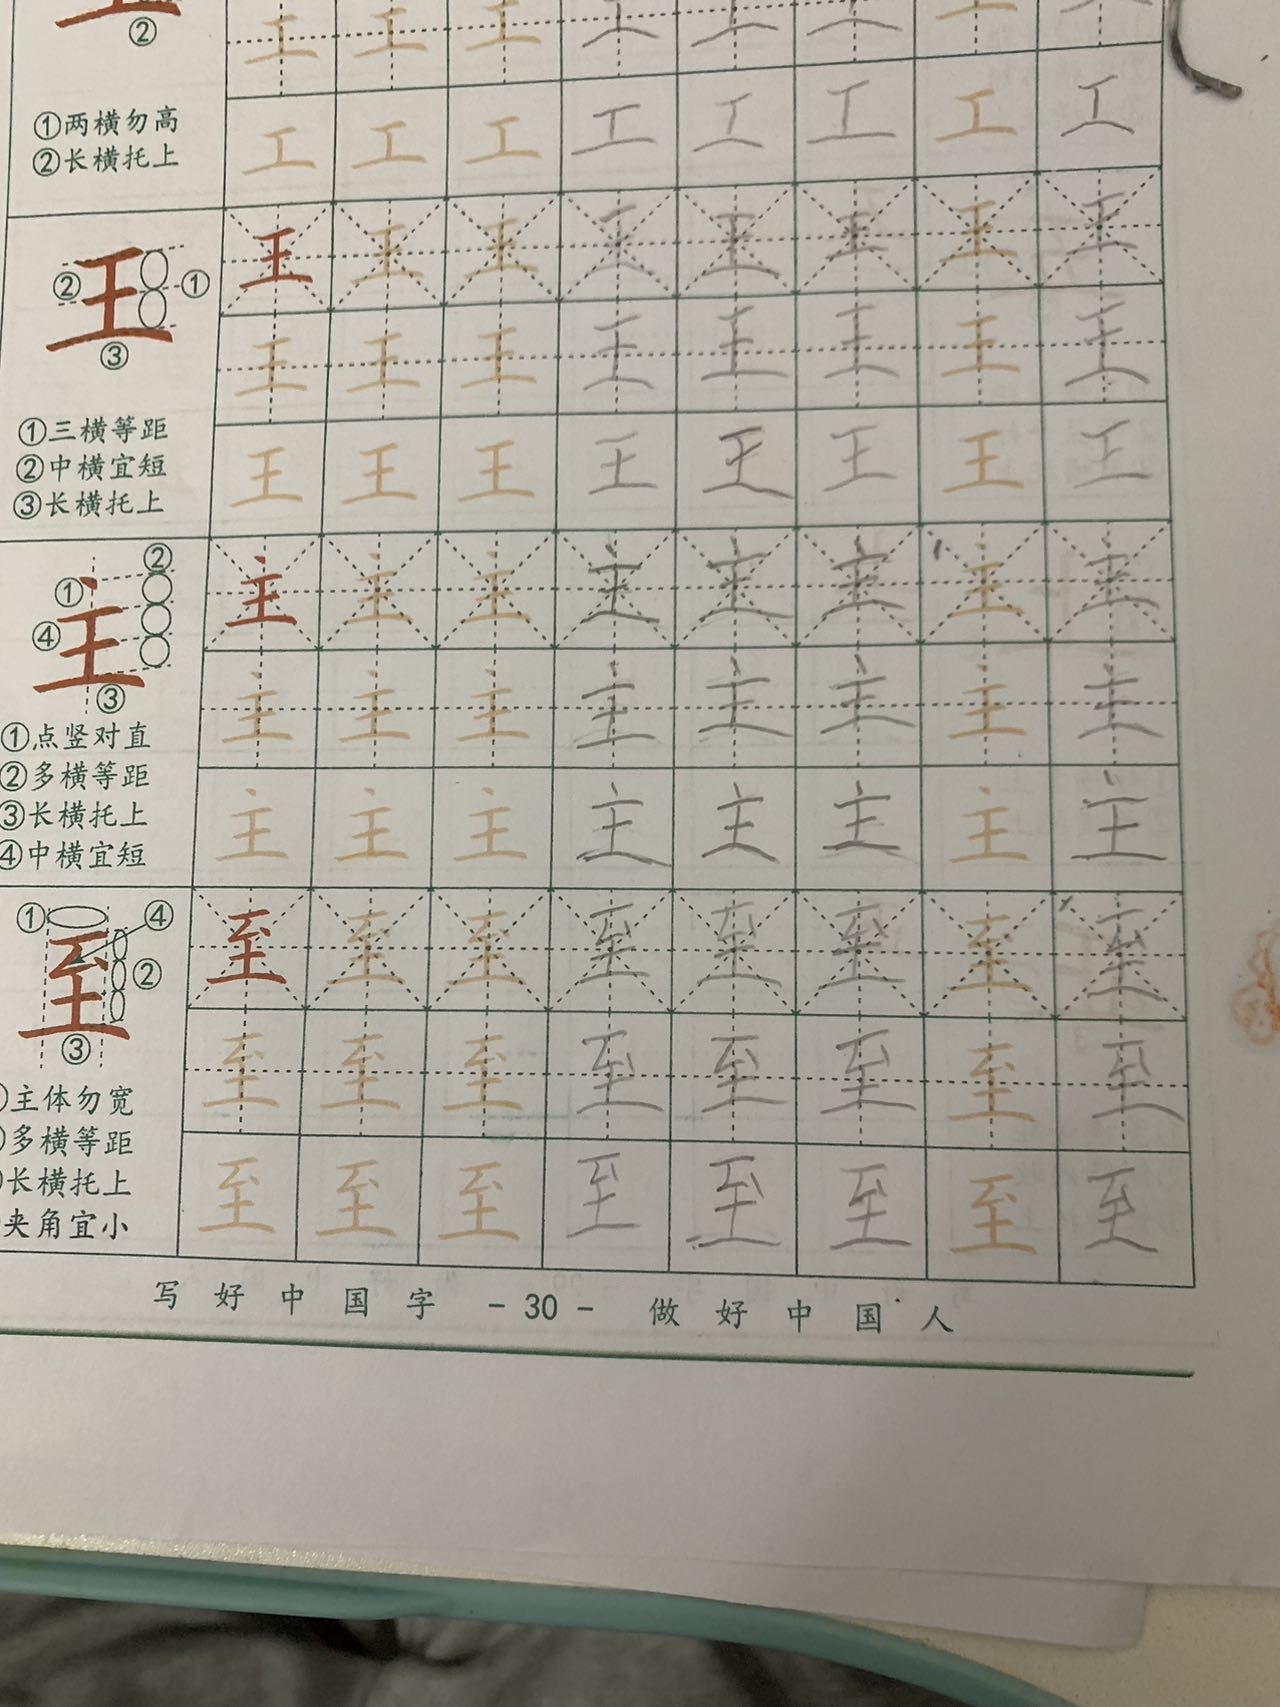 ②
工 工 工 工 工 工 工 工
①两横勿高
②长横托上
工 工 工 工 工 工 工 工
王 王 王 王 王 王 王 王
② 王 ①
③
王 王 王 王 王 王 王 王
①三横等距
②中横宜短
③长横托上
王 王 王 王 王 王 王 王
②
① 主
④
③
主 主 主 主 主 主 主 主
主 主 主 主 主 主 主 主
①点竖对直
②多横等距
③长横托上
④中横宜短
主 主 主 主 主 主 主 主
① ④
至 ②
③
至 至 至 至 至 至 至 至
至 至 至 至 至 至 至 至
主体勿宽
多横等距
长横托上
夹角宜小
至 至 至 至 至 至 至 至
写好中国字 -30- 做好中国人